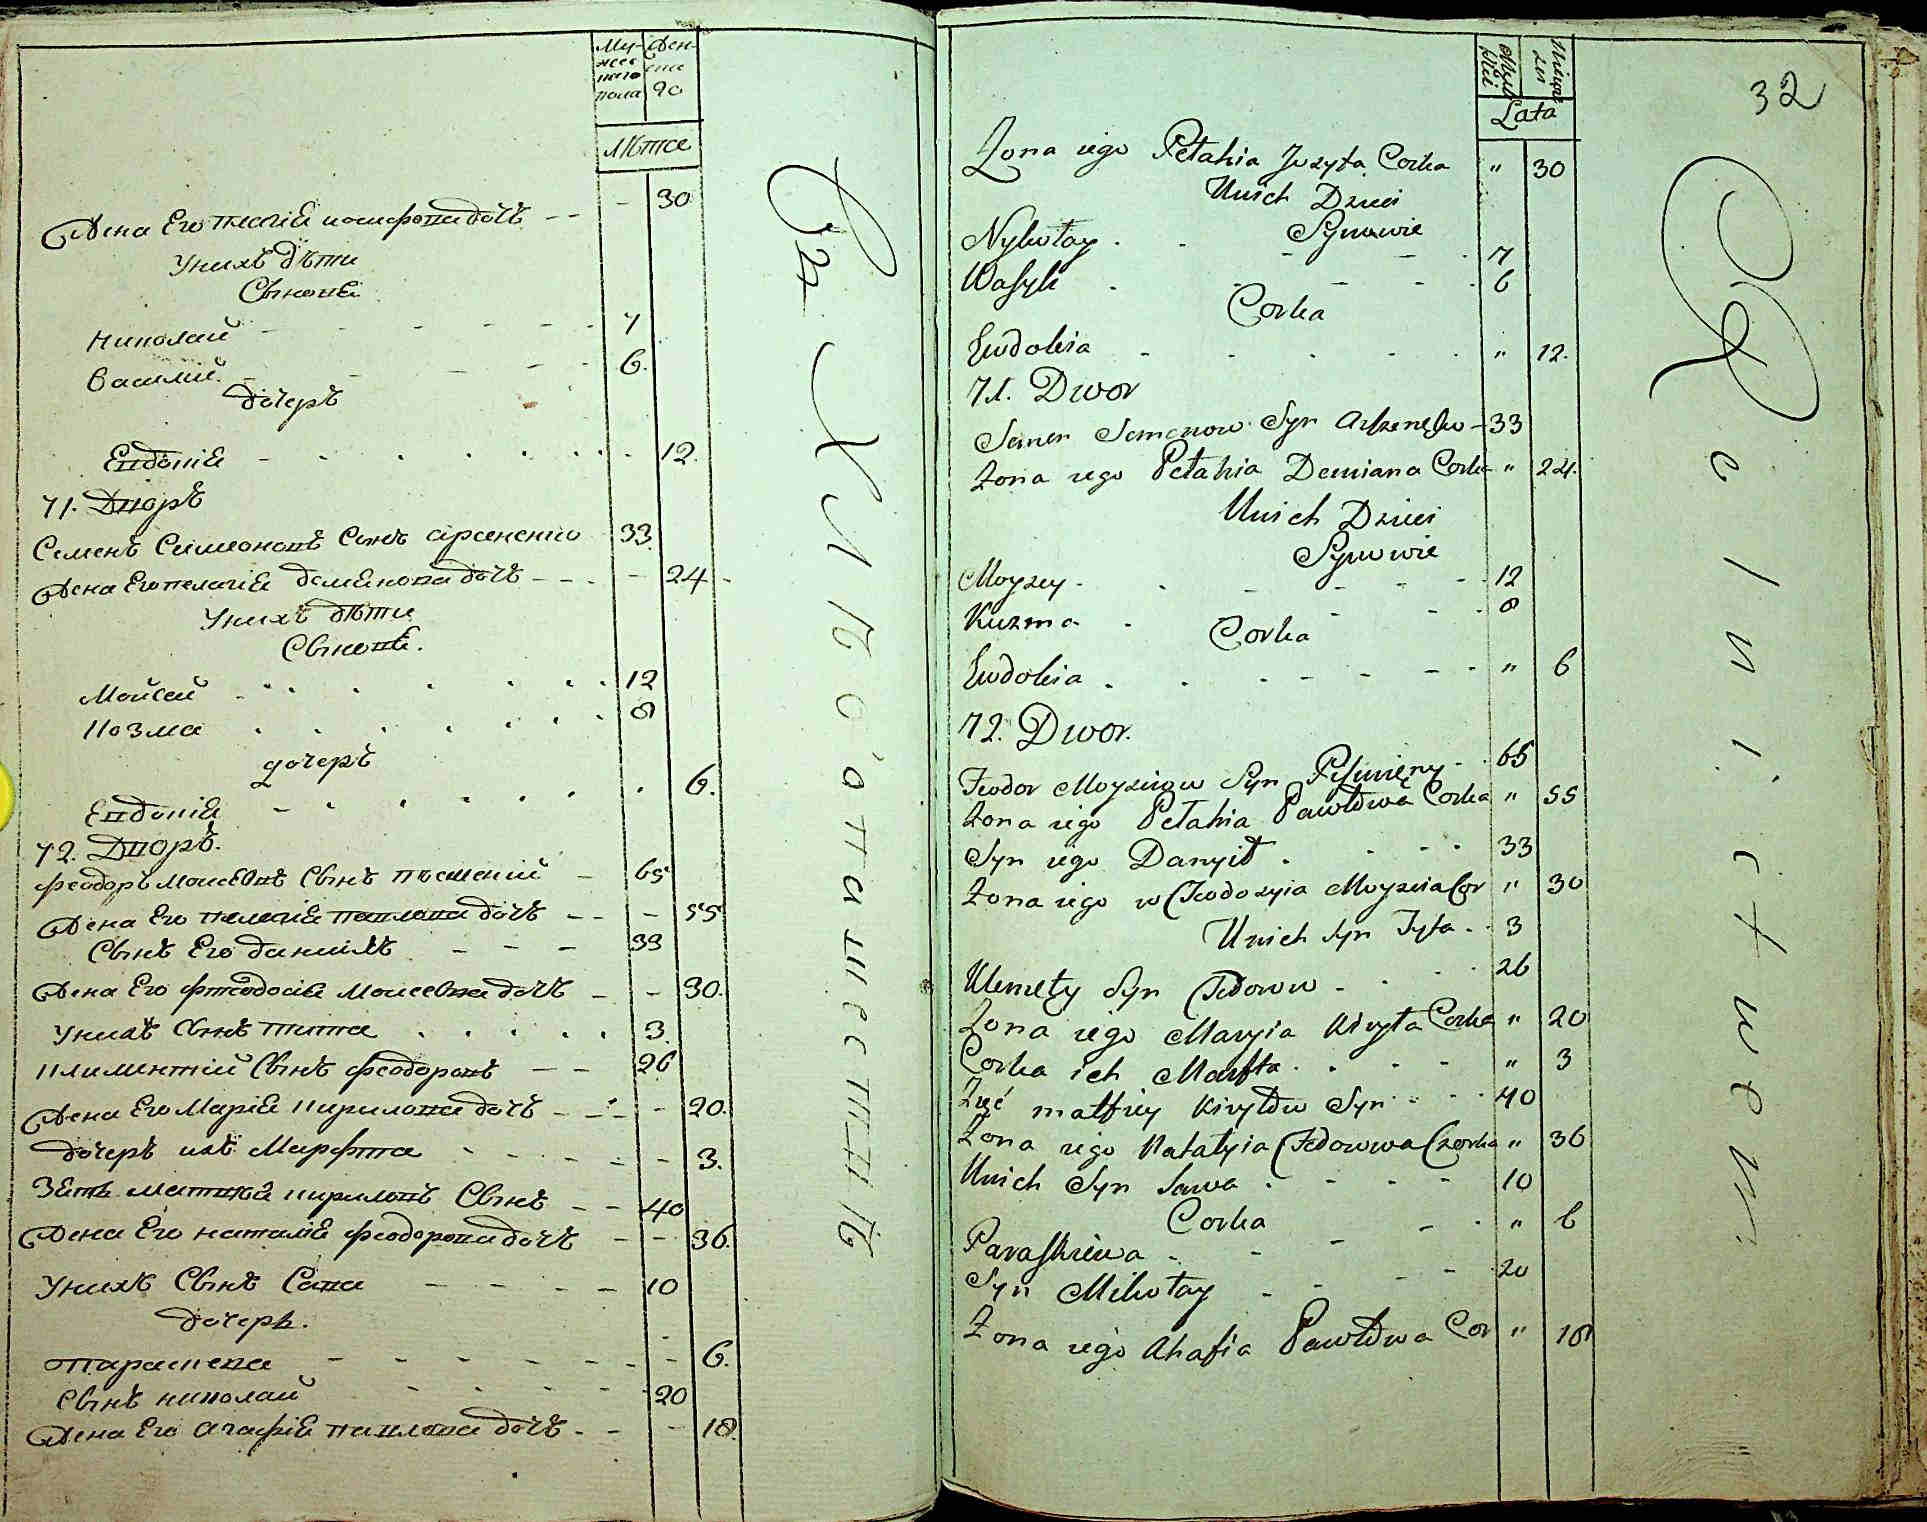 Му-
жес
каго
пола
Жен-
ска
го
Лѣта
Жена Его пелагія иосифова дочь - - - 30
Унихъ дѣти
Сынове
Николай 7
Василій 6.
дочерь
Евдокія 12.
71. Дворъ
Семенъ Симеоновъ Сынъ арсененко 33.
Жена Его пелагія Деміянова дочь - - - 24
Унихъ дѣти
Сынове.
Мойсей 12
Козма 8
дочерь
Евдокія 6.
72. Дворъ.
феодоръ Моисеовъ Сынъ 65
Жена Его пелагія павлова дочь - - - 55
Сынъ Его Даниилъ - - - 33
Жена Его феодосія Моисеева дочь - - 30.
Унихъ Сынъ тита 3.
Климентій Сынъ феодоровъ - - 26
Жена Его Марія кирилова дочь - - - 20.
дочерь ихъ Марфта - 3.
Зять Матфей кириловъ Сынъ - - 40
Жена Его наталія феодорова дочь - - 36.
Унихъ Сынъ Сава - - - - 10
дочерь.
параскева - 6.
Сынъ николай 20
Жена Его агафія павлова дочь - - - 18.
Съ Хлѣбопашествѣ
32
Lata
Żona iego Pełahia Jozyfa Corka " 30
Unich Dzieci
Synowie
Nykołay - 7
Wasyli - 6
Corka
Ewdokia - " 12.
71. Dwor
Semen Semenow Syn Arszenęko - 33
Żona iego Pełahia Demiana Corka " 24.
Unich Dzieci
Synowie
Moyzey - 12
Kuzma - 8
Corka
Ewdokia - " 6
72. Dwor.
Feodor Moyzeiow Syn 65
Żona iego Pełahia Pawłowa Corka " 55
Syn iego Danyił - 33
Żona iego Feodozyia Moyzeia Cor " 30
Unich Syn Tyta - 3
Klemęty Syn Fedorow - 26
Żona iego Maryia Kiryła Corka " 20
Corka ich Marfta - " 3
Zięć matfiey Kiryłow Syn - 40
Żona iego Natalyia Fedorowa Czorka " 36
Unich Syn Sawa - 10
Corka
Paraskiewa - " 6
Syn Mikołay - 20
Żona iego Ahafia Pawłowa Cor " 18
Rolnictwem